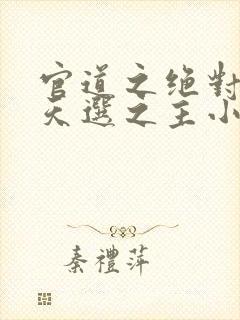 官道之绝對
天選之主小
秦禮萍